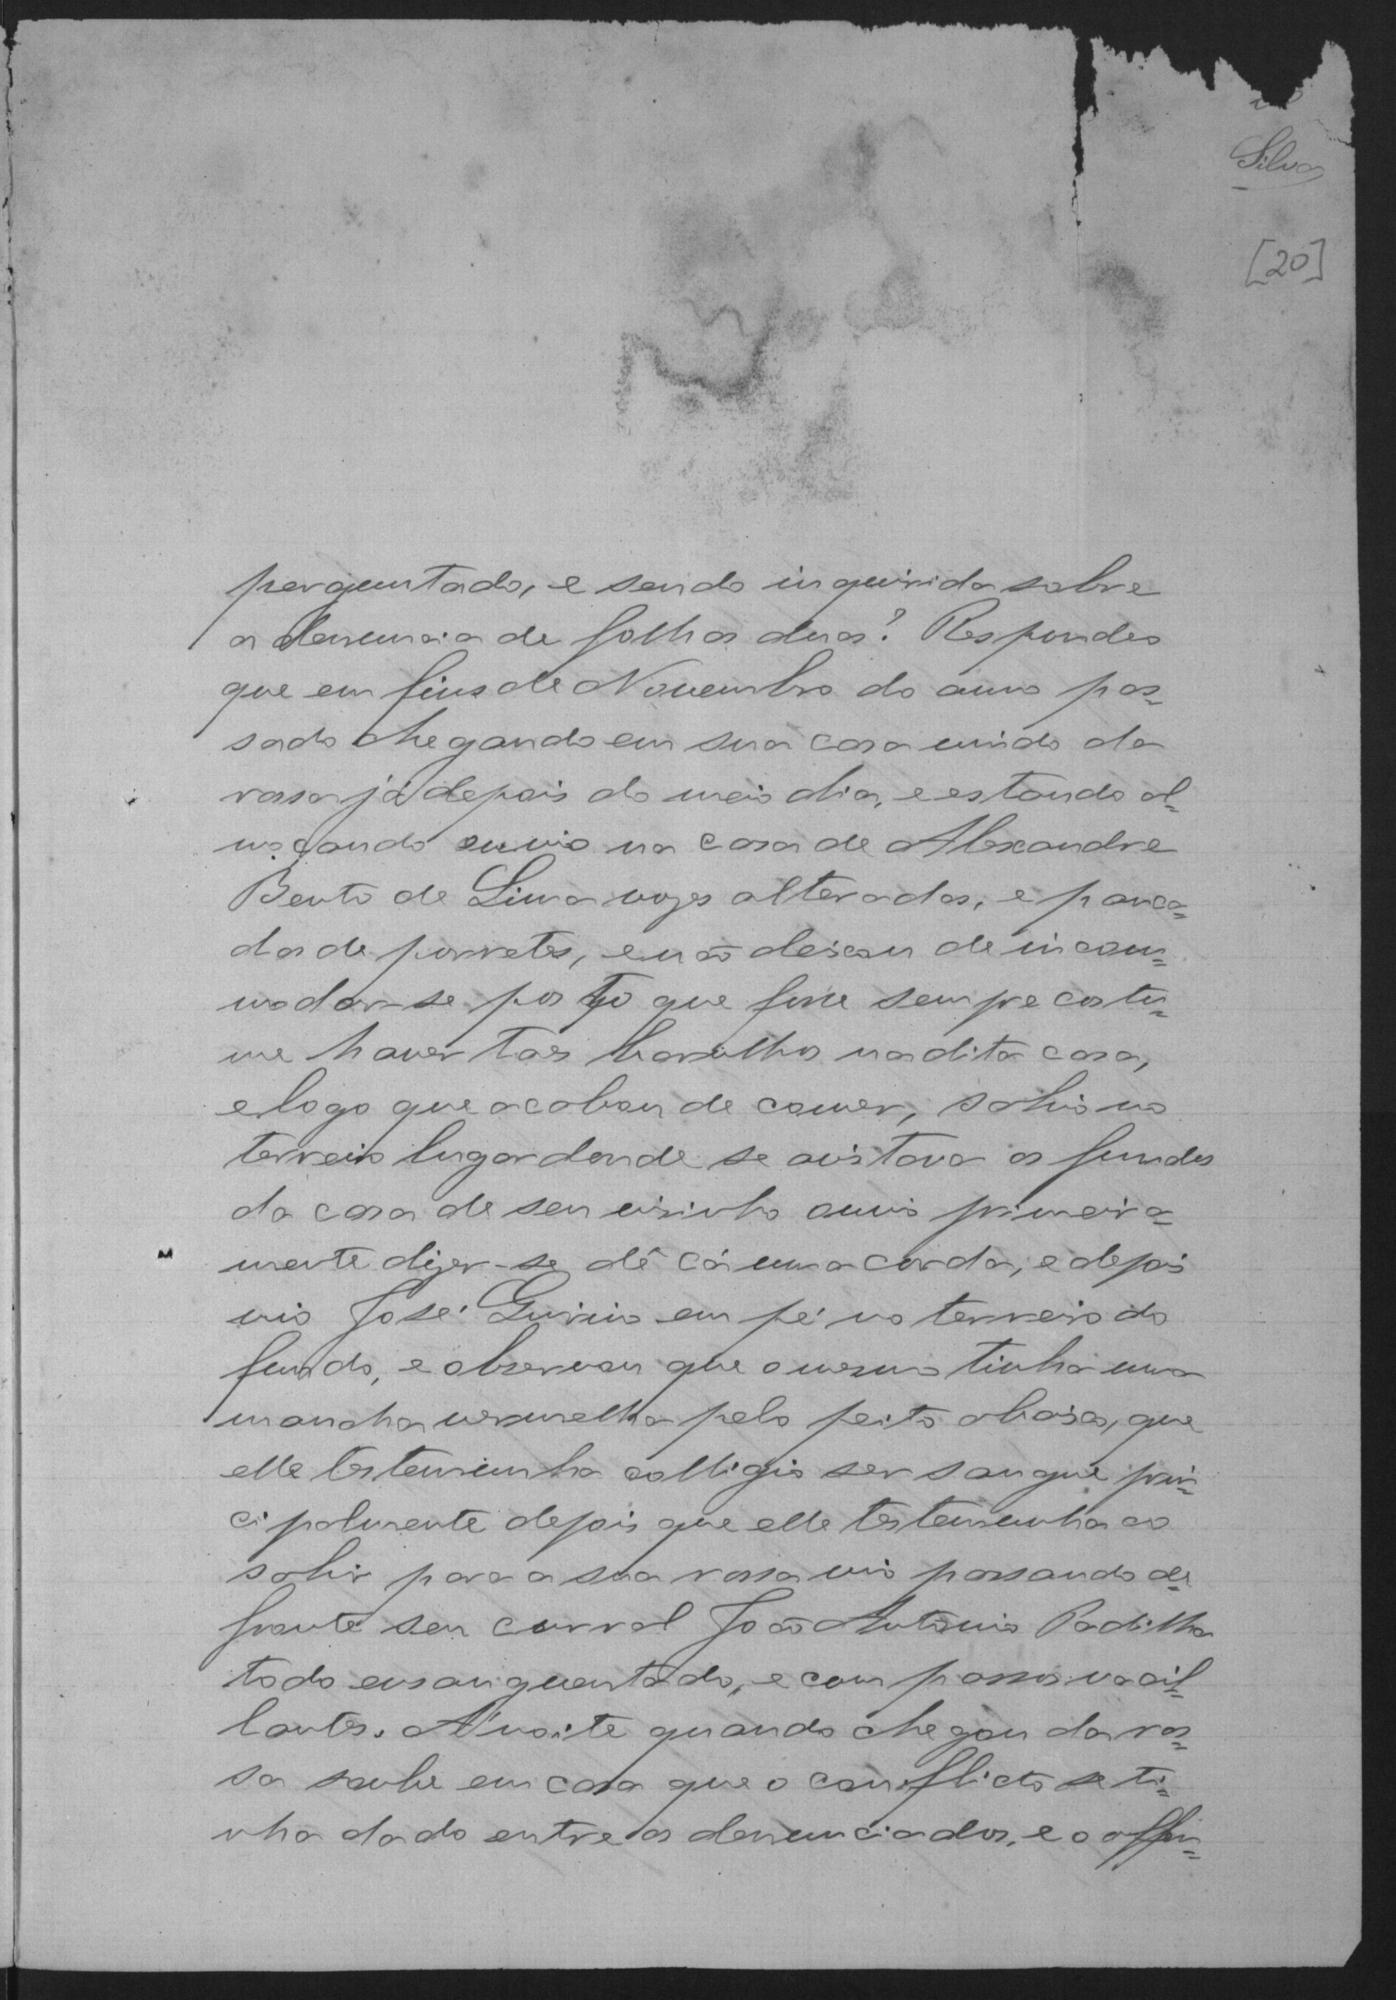 Silva
[20]
perguntado, e sendo inquirida sobre
a denuncia de folhas duas? Respondeo
que em fins de Novembro do anno pas=
sado chegando em sua casa vindo da
rossa já depois do meio dia, e estando al=
moçando ouvio na casa de Alexandre
Bento de Lima vozes alteradas, e panca=
das de porretes, e não deixou de incom=
modar-se posto que fosse sempre costu=
me haver taes barulhos na dita casa,
e logo que acabou de comer, sahio no
terreiro lugar donde se avistava os fundos
da casa de seu visinho ouvio primeira=
mente dizer-se dê cá uma corda, e depois
vio José Quirino em pé no terreiro do
fundo, e observou que o mesmo tinha uma
mancha vermelha pelo peito abaixo, que
elle testemunha colligio ser sangue prin=
cipalmente depois que elle testemunha ao
sahir para a sua rossa vio passando de=
fronte seu curral João Antonio Padilha
todo ensanguentado, e com passos vacil=
lantes. A' noite quando chegou da ros=
sa soube em casa que o conflicto se ti=
nha dado entre os denunciados, e o offen=